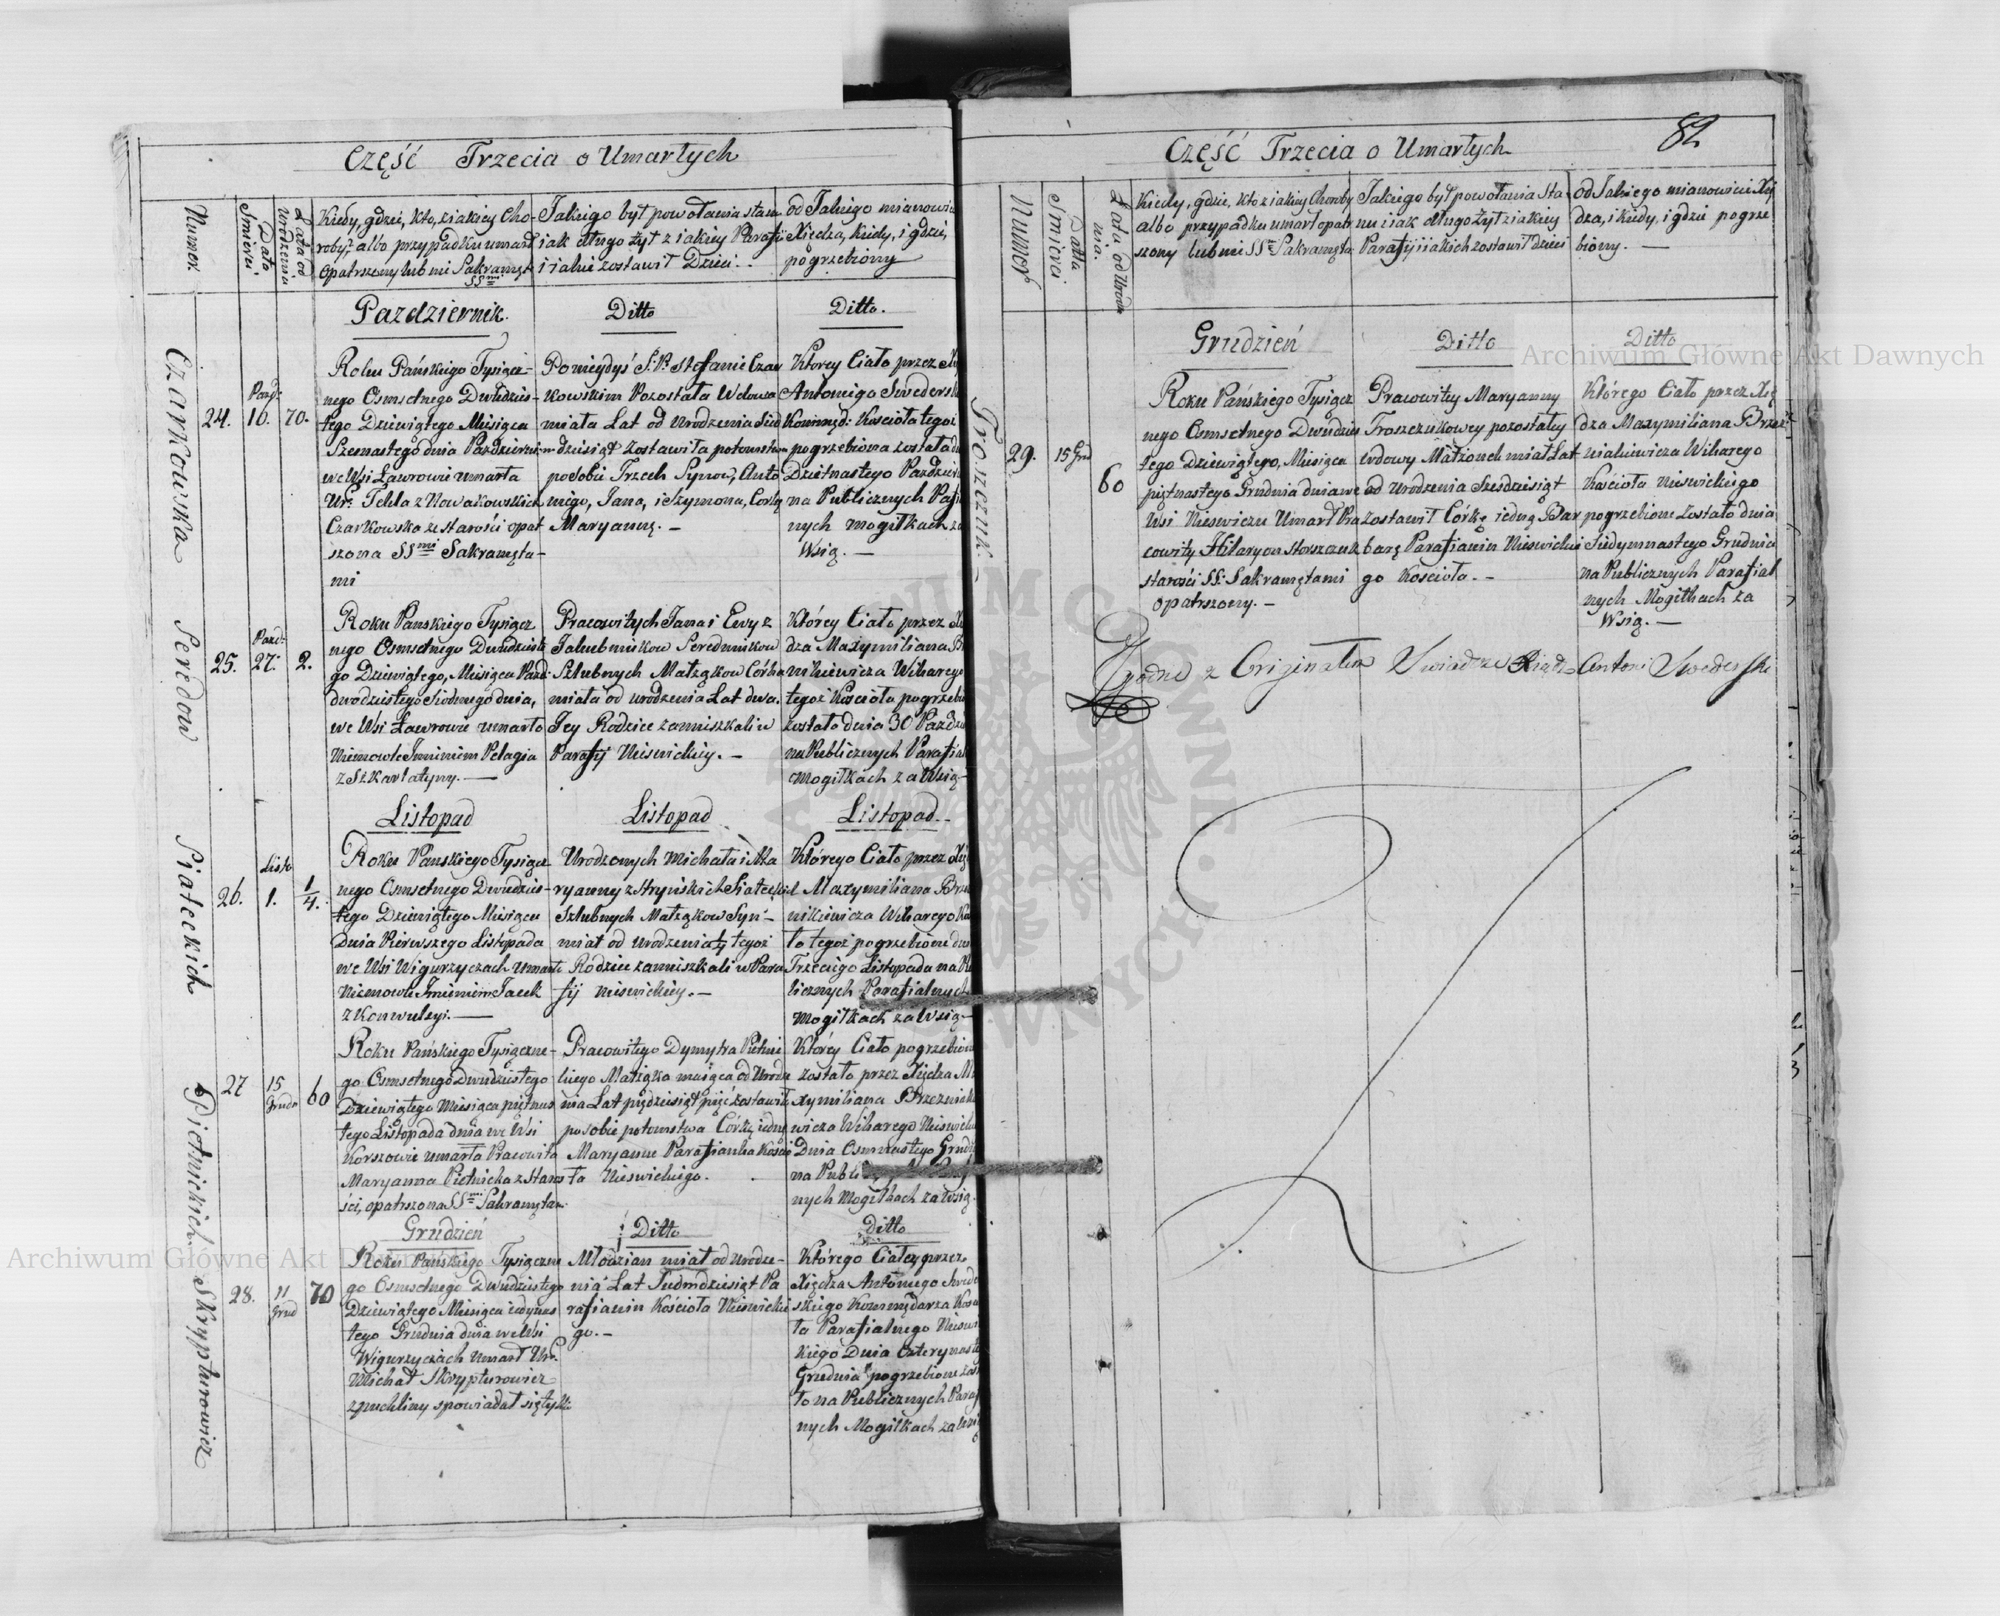 Część Trzecia o Umarłych
Numer
Data Śmierci
Lata od Urodzenia
Kiedy, gdzie, kto, z iakiey Cho-
roby, albo przypadku umarł
Opatrzony lub nie Sakramęt.
SSmi
Jakiego był powołania stanu
iak długo żył z iakiey Parafii
i iakie zostawił Dzieci.
od Jakiego mianowicie
Xiędza, kiedy, i gdzie,
pogrzebiony
Pazdziernik.
Ditto
Ditto.
Czarkowska
24.
Pazd:
16.
70.
Roku Pańskiego Tysiącz-
nego Osmsetnego Dwudzies-
tego Dziewiątego Miesiąca
Szesnastego dnia Pazdziernika
we Wsi Ławrowie umarła
Ur: Tekla z Nowakowskich
Czarkowska ze starości opat
szona SSmi Sakramęta-
mi
Po niegdyś S:P: Stefanie Czar
kowskim Pozostała Wdowa
miała Lat od Urodzenia Sied
mdziesiąt Zostawiła potomstwa
po sobie Trzech Synow, Anto
niego, Jana, i Szymona, Corkę
Maryannę. -
Którey Ciało przez Xię
Antoniego Swedersk
Kommęd: Kościoła tegoż
pogrzebiona została dnia
Dzietnastego Pazdzier
na Publicznych Pafi
nych mogiłkach za
Wsią. -
Seredow
25.
Pazd:
27:
2.
Roku Panskiego Tysiącz
nego Osmsetnego Dwudzieste
go Dziewiątego, Miesiąca Pazd
dwudziestego Siodmego dnia,
we Wsi Ławrowie umarło
Niemowle Imieniem Pelagia
z Szkarlatyny. -
Pracowitych Jana i Ewy z
Jakubinikow Seredunikow
Szlubnych Małżąkow Córka
miała od urodzenia Lat dwa.
Jey Rodzice zamiszkali w
Parafij Nieswickiey. -
Którey Ciało przez Xię
dza Maxymiliana B
nikiewicza Wikarego
tegoż Kościoła pogrzebio
zostało dnia 30 Pazdzie
na Publicznych Parafial
Mogiłkach za Wsią -
Listopad
Listopad
Listopad -
Siateckich
26.
Listo
1.
1/4.
Roku Panskiego Tysiącz
nego Osmsetnego Dwudzies-
tego Dziewiątego Miesiąca
Dnia Pierwszego Listopada
we Wsi Wigurzyczach umarło
Niemowle Imieniem Jacek
z Konwulsyi. -
Urodzonych Michała i Ma
ryanny z Stryiskich Siateckich
Szlubnych Małżąkow Syn -
miał od urodzenia 1/4 tegoż
Rodzice zamieszkali w Para
fij Nieswickiey. -
Którego Ciało przez Xię
Maxymiliana Brze
nikiewicza Wikarego Ko
ła tegoż pogrzebione dnia
Trzeciego Listopada na Pu
blicznych Parafialnych
Mogiłkach za Wsią -
Pietnickich
27
15
Grudn
60
Roku Pańskiego Tysiączne-
go Osmsetnego Dwudziestego
Dziewiątego Miesiąca piętnas
tego Listopada dnia we Wsi
Korszowie umarła Pracowita
Maryanna Pietnicka z Staro
ści, opatrzona SSmi Sakramęta
Pracowitego Dymytra Pietnic
kiego Małżąka maiąca od Urodze
nia Lat pięćdziesiąt pięć zostawiła
po sobie potomstwa Córkę iedną
Maryanne Parafianka Kości
ła Nieswickiego.
Którey Ciało pogrzebion
zostało przez Xiędza Ma
xymiliana Brzeznik
wicza Wikarego Nieswick
Dnia Osmnastego Grudn
na Publi
nych Mogiłkach za Wsią.
Grudzień
Ditto
Ditto
Skrypturowicz
28.
11
Grud
70
Roku Pańskiego Tysiączne
go Osmsetnego Dwudziestego
Dziewiątego Miesiąca iedynas
tego Grudnia dnia we Wsi
Wigurzyczach umarł Ur:
Michał Skrypturowicz
z puchliny spowiadał się tylko
Młodzian miał od Urodze-
nia Lat Siedmdziesiąt Pa
rafianin Kościoła Nieswickie
go. -
Którego Ciało przez
Xiędza Antoniego Swede
skiego Kommędarza Kości
ła Parafialnego Nieswi
kiego Dnia Czternast
Grudnia pogrzebione zos
ło na Publicznych Paraf
nych Mogiłkach za Wsi
82
Część Trzecia o Umarłych
Numer
Datta Śmierci
Lata od Urodze
nia.
Kiedy, gdzie, kto z iakiey Choroby
albo przypadku umarł opatr
szony lub nie SSmi Sakramęta
Jakiego był powołania Sta-
nu iak długo żył z iakiey
Parafij i iakich zostawił dzieci
od Jakiego mianowicie Xię
dza, i kiedy, i gdzie pogrze
biony. -
Grudzień
Ditto
Ditto
Troszczuk
29.
15 Grud
60
Roku Pańskiego Tysiącz
nego Osmsetnego Dwudzies
tego Dziewiątego, Miesiąca
piętnastego Grudnia dnia we
Wsi Nieswiczu Umarł Pra
cowity Hilaryon Storszczuk z
starości SS: Sakramętami
opatrszony. -
Pracowitey Maryanny
Troszczukowey pozostałey
wdowy Małżonek miał Lat
od Urodzenia Szesdziesiąt
zostawił Córkę iedną Bar
barę Parafianin Nieswickie
go Kościoła. -
Którego Ciało przez Xię
dza Maxymiliana Brzeź
niakiewicza Wikarego
Kościoła Nieswickiego
pogrzebione zostało dnia
Siedymnastego Grudnia
na Publicznych Parafial
nych Mogiłkach za
Wsią. -
Zgodno z Originałem Swiadczę Xiądz Antoni Swederski
Archiwum Główne Akt Dawnych
Archiwum Główne Akt Dawnych